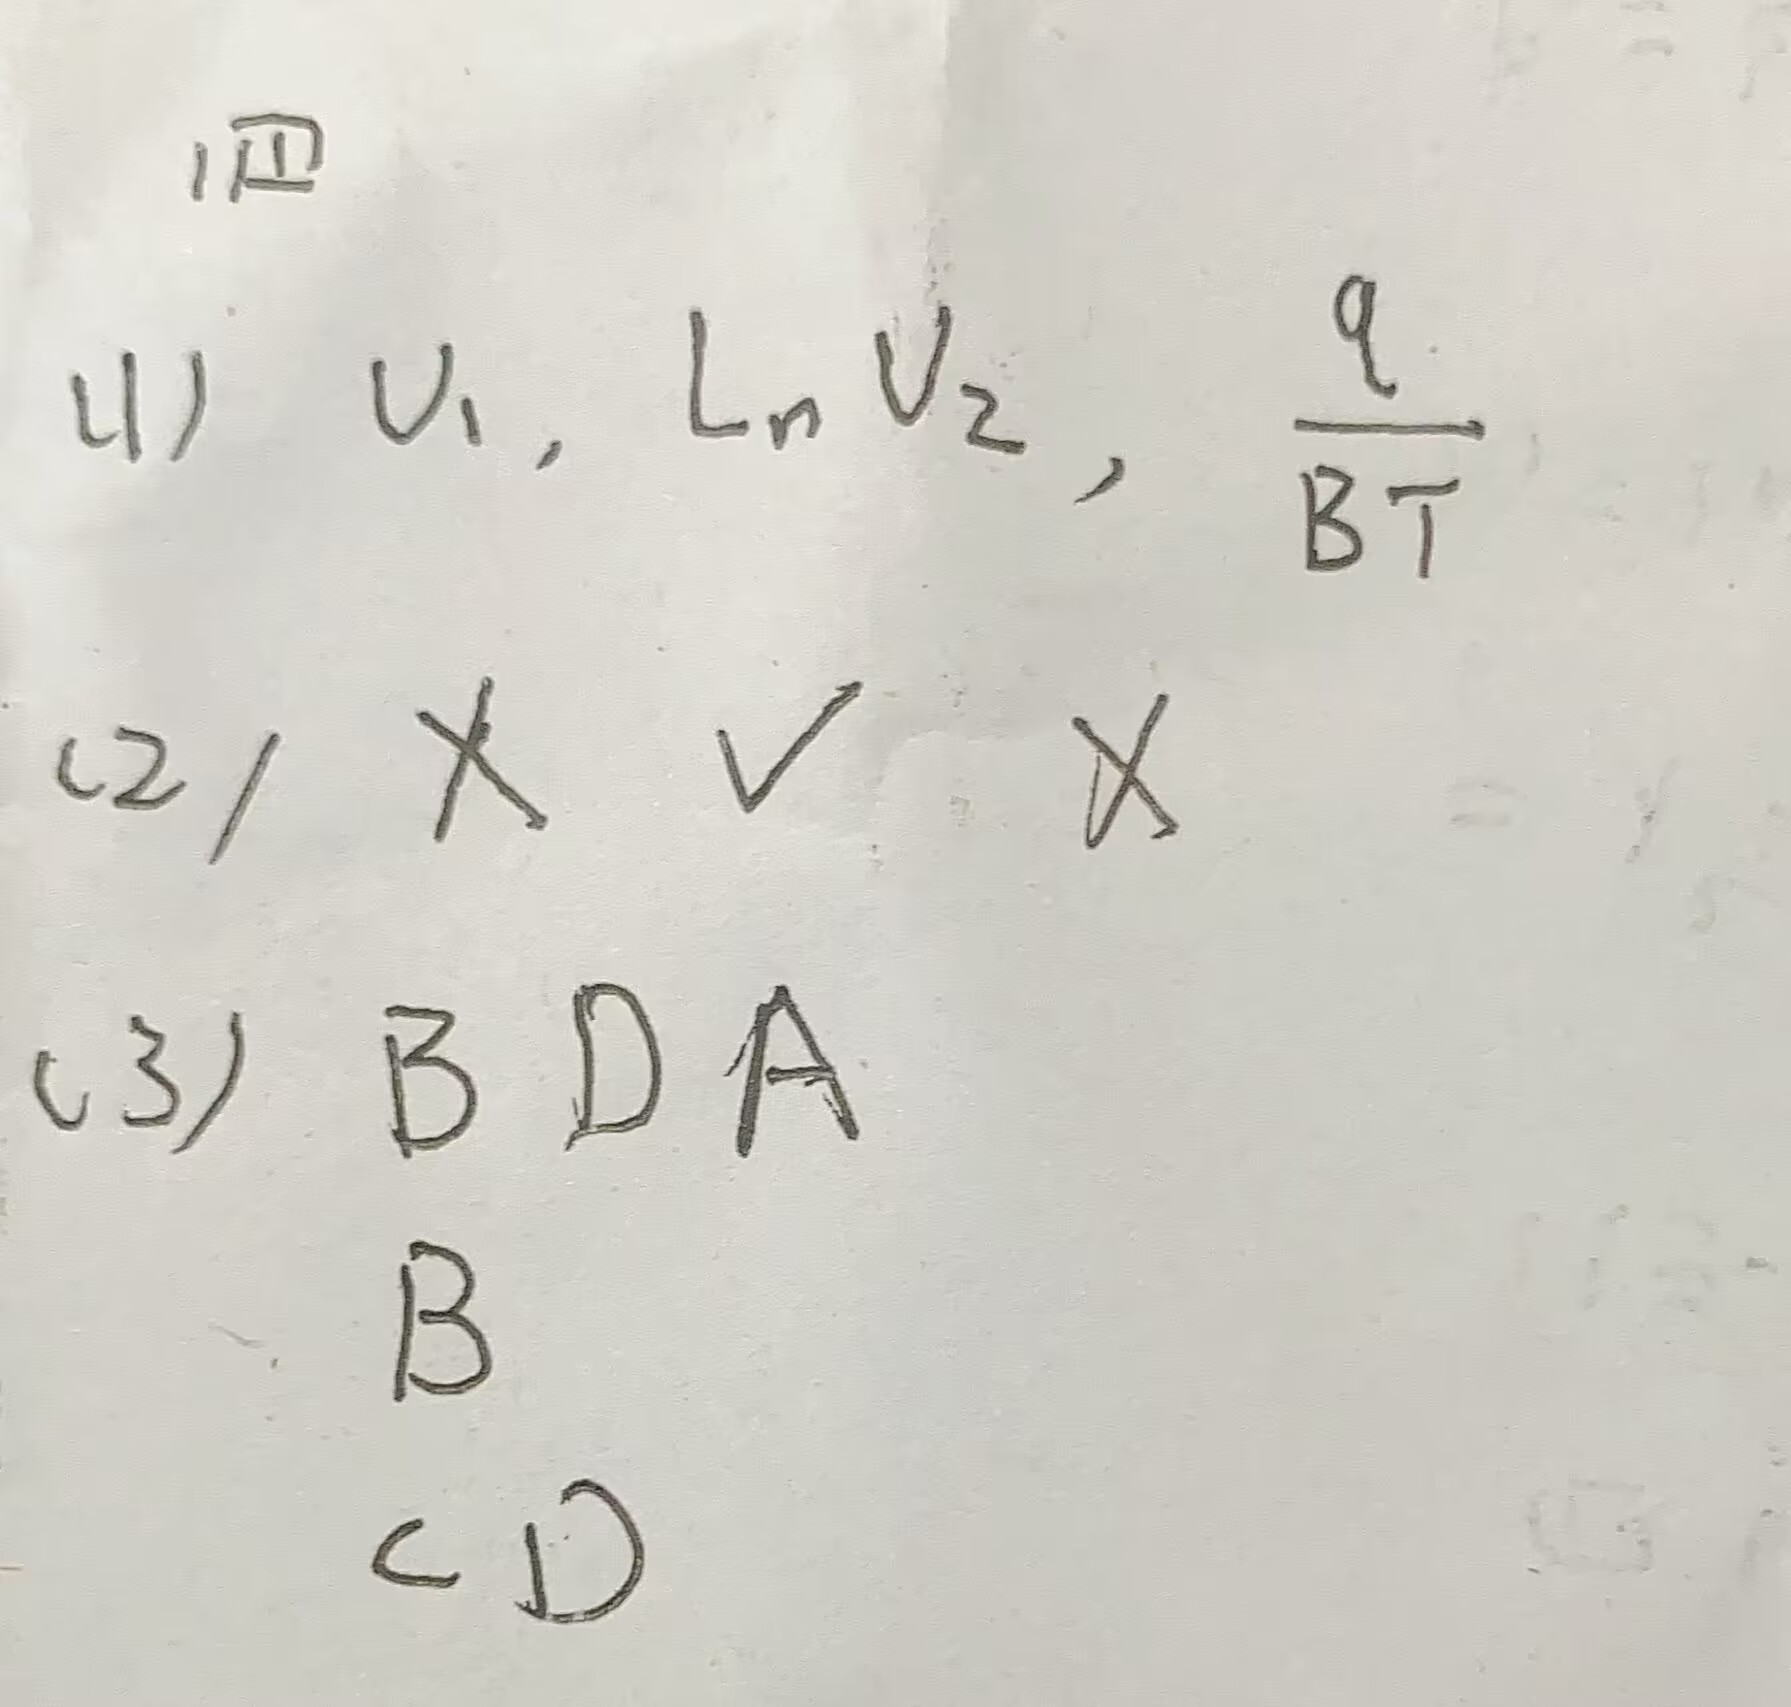 四
(1) U₁, Ln V₂, q/BT
(2) X ✓ X
(3) B D A
B
C D